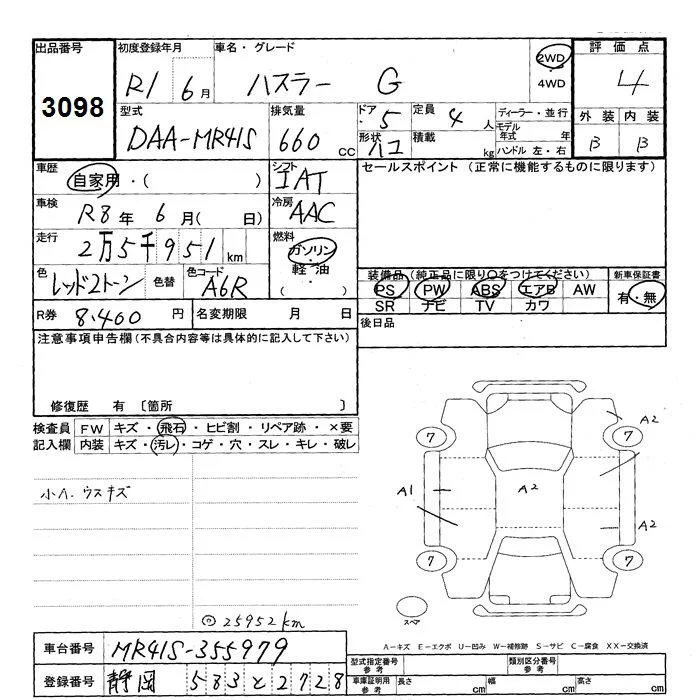 出品番号 初度登録年月 車名・グレード 評価点
3098 R1 6月 ハスラー G 2WD 4WD 4
型式 排気量 ドア・形状 定員 ディーラー・並行 外装 内装
DAA-MR41S 660 cc 5 ハコ 4人 積載 kg モデル年式 年 ハンドル 左・右 B B
車歴 自家用・( ) シフト IAT セールスポイント (正常に機能するものに限ります)
車検 R8年 6月( 日) 冷房 AAC
走行 2万5千951km 燃料 ガソリン・軽油 ( )
色 レッド2トーン 色替 色コード A6R 装備品(純正品に限り○をつけてください) 新車保証書
PS PW ABS エアB AW 有・無
SR ナビ TV カワ
R券 8.400円 名変期限 月 日 後日品
注意事項申告欄(不具合内容等は具体的に記入して下さい)
修復歴 有 〔箇所 〕
検査員 FW キズ・飛石・ヒビ割・リペア跡・×要
記入欄 内装 キズ・汚レ・コゲ・穴・スレ・キレ・破レ
小A.ウスキズ
◎25952km
7 7 A2
A1 A2 A2
7 7
スペア
A-キズ E-エクボ U-凹み W-補修跡 S-サビ C-腐食 XX-交換済
車台番号 MR41S-355979
登録番号 静岡 583と2728
型式指定番号 参考 類別区分番号 参考
車庫証明用 参考 長さ cm 幅 cm 高さ cm